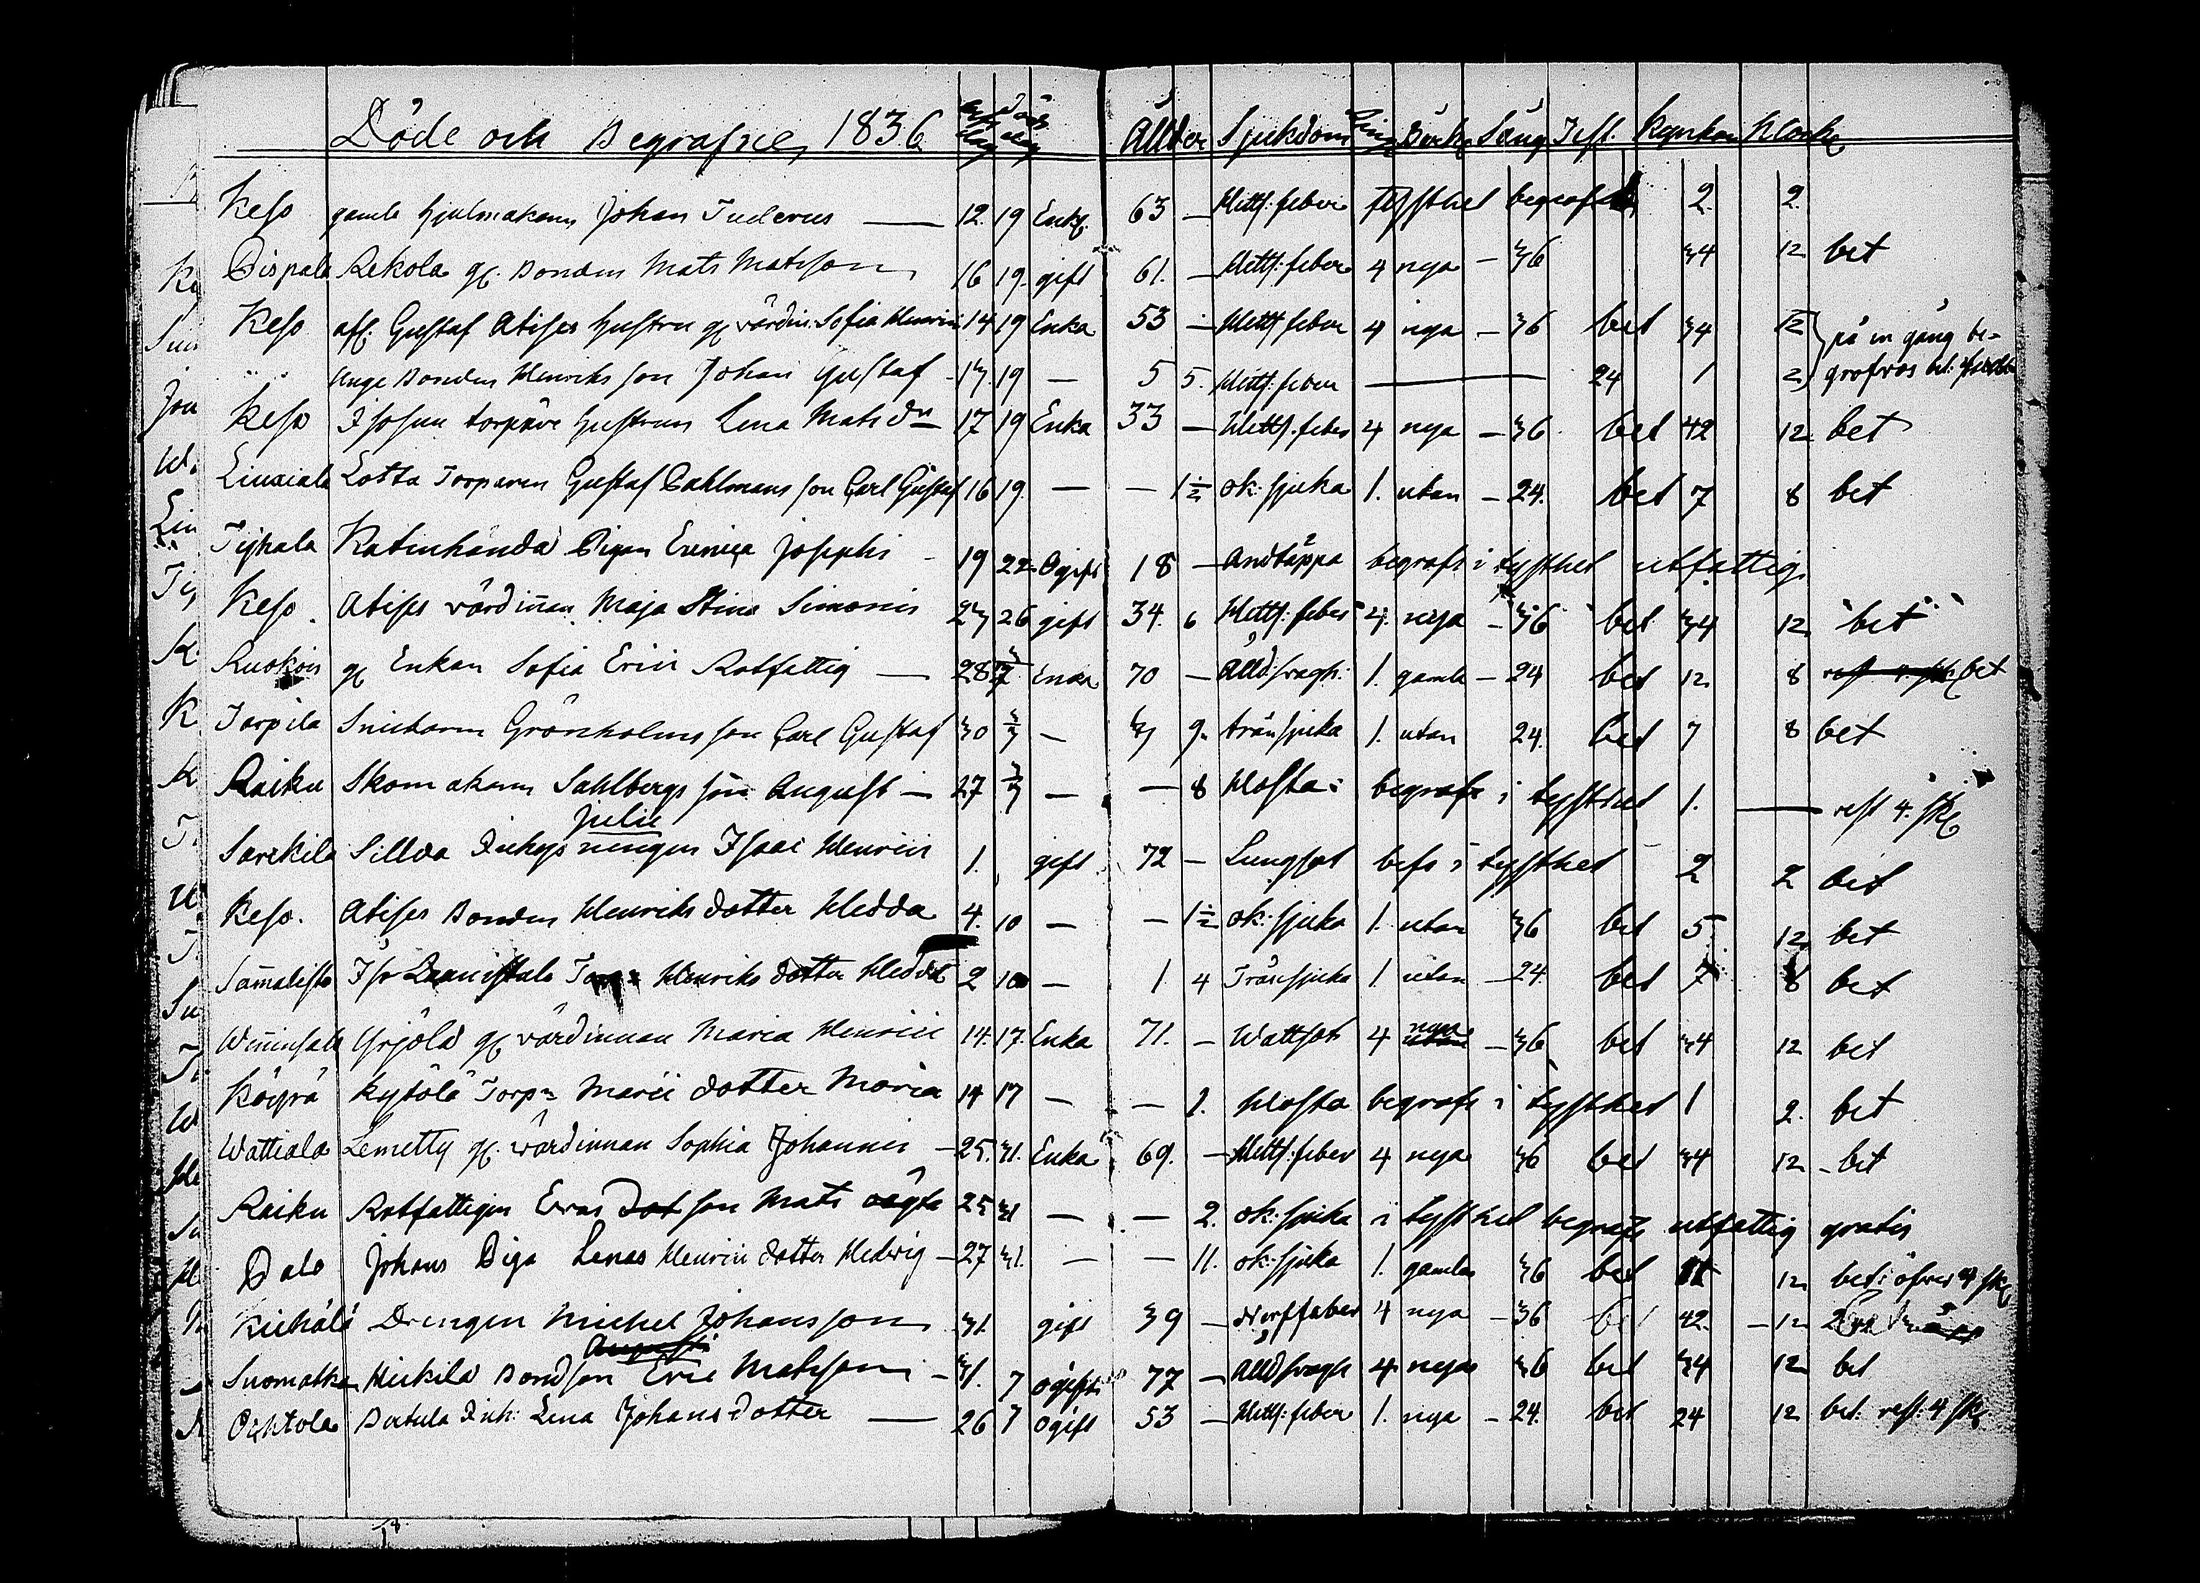 Döde och Begrafne, 1836 Ållder Sjukdom Ring Bårk Säng Test. Kyrkan Klock
Keso gamle Hjulmakarn Johan Tuderus — 12. 19 Enkl. 63 — Hettf: feber tysthet begrafd 2. 2.
Pispala Rekola gl. Bonden Mats Matsson 16 19. gift 61. — Hettf: feber 4 nya — 36 34 12 bet
Keso afl. Gustaf Atises Hustru gl värdin: Sofia Henrici 14 19 Enka 53 — Hettf feber 4 nya — 36 bet 34 12 på en gång be-
" " Unge Bonden Henriks son Johan Gustaf - 13. 19 — 5 5. Hettf: feber — 24 1 2 grofvos bet:
Keso Isosuu torpare Hustrun Lena Mats dr 17 19 Enka 33 — Hettf. feber 4 nya — 36 bet 42 12 bet
Liuxiala Lotta Torparen Gustaf Dahlmans son Carl Gustaf 16 19. — — 1½ ok: sjuka 1. utan — 24. bet 7 8 bet
Tijhala Katinhända Pigan Eunica Josephi - 19 22 Ogift 18 — Andtäppa begrafs i tysthet utfattig
Keso. Atises värdinnan Maja Stina Simonis 23 26 gift 34. 6 Hettf: feber 4. nya — 36 bet 34 12 bet
Ruokois gl Enkan Sofia Erici Rotfattig — 28 3/7 Enka 70 — Ålld: svagh: 1. gamla — 24 bet 12 8 rest 4. sk: bet
Tarpila Snickarn Grönholms son Carl Gustaf 30 3/7 — 3 9. trånsjuka 1. utan 24. bet 7 8 bet
Raiku Skomakarn Sahlbergs son August — 27 3/7 — — 8 Hosta: begrafs i tysthet 1. — rest 4. sk
Julii
Sarikila Sillda Inhysningen Isaac Henrici 1. gift 72 — Lungsot befs i tysthet 2 2 bet
Keso. Atises Bonden Henriks dotter Hedda 4. 10 — — 1½ ok: sjuka 1. utan 36 bet 5 12 bet
Sammalisto Iso Torp: Henriks dotter Hedda 2 10 — 1 4 Trånsjuka 1 utan — 24. bet 7 8 bet
Winninsala Yrjölä gl värdinnan Maria Henrici 14. 17. Enka 71. — Wattsot 4 nya utan — 36 bet 34 12 bet
Köyrä Kytölä Torp: Marii dotter Maria 14 17 — — 2. Hosta begrafs i tysthet 1 2. bet
Wattiala Lemetty gl. värdinnan Sophia Johannis — 25. 31. Enka 69. — Hettf: feber 4 nya 36 bet 34 12 - bet
Raiku Rotfattigen Evas Dot son Mats oägta 25 31 — — 2. ok: sjuka i tysthet begrafs utfattig gratis
Palo Johans Piga Lenas Henrici dotter Hedvig — 27 31. — — 11. ok: sjuka 1. gamla 36 bet 12 bet: öfver 4 sk
Drengen Michel Johansson 31. gift 39 — Nerffeber 4 nya — 36 bet 42. — 12
Augusti
Suomatka Hickilä Bondson Eric Matsson — 31. 7 ogift 77 — Ålld svagh 4 nya 36 bet 34 12 bet
Ochtola Bertula Inh: Lena Johansdotter — 26 7 ogift 53 — Hettf: feber 1. nya — 24. bet 24 12 bet: rest: 4 sk